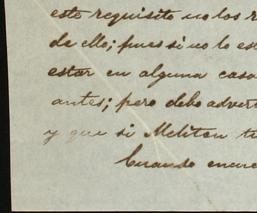 este requisito no los
de ello; pues si no lo es
estar en alguna casa
antes; pero debo advert
y que si Meliton t
Cuando encue